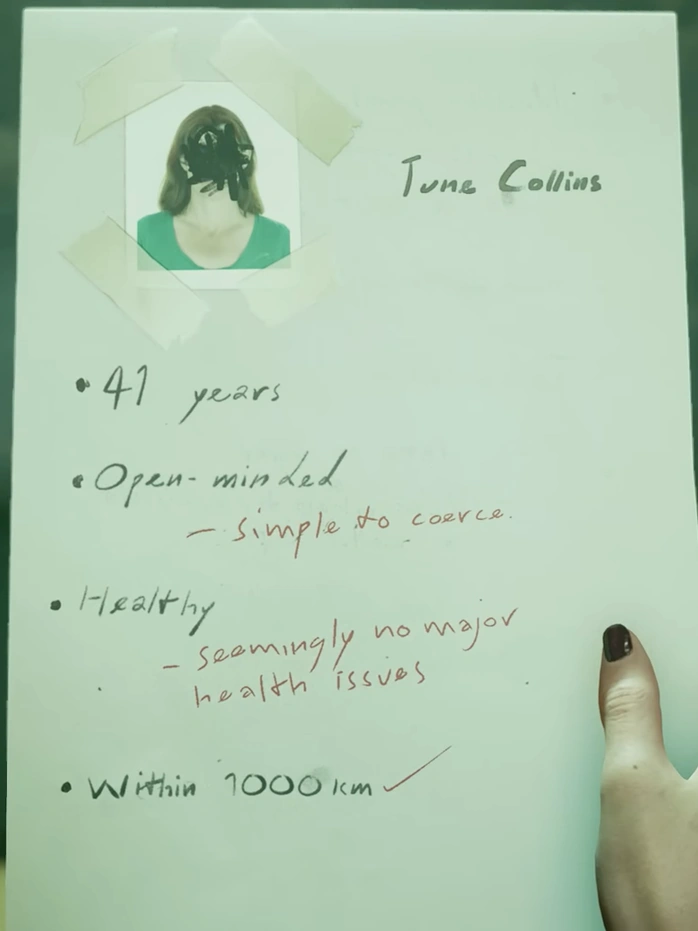 Tune Collins
• 41 years
• Open-minded
– simple to coerce.
• Healthy
– seemingly no major
health issues
• Within 1000 km ✓